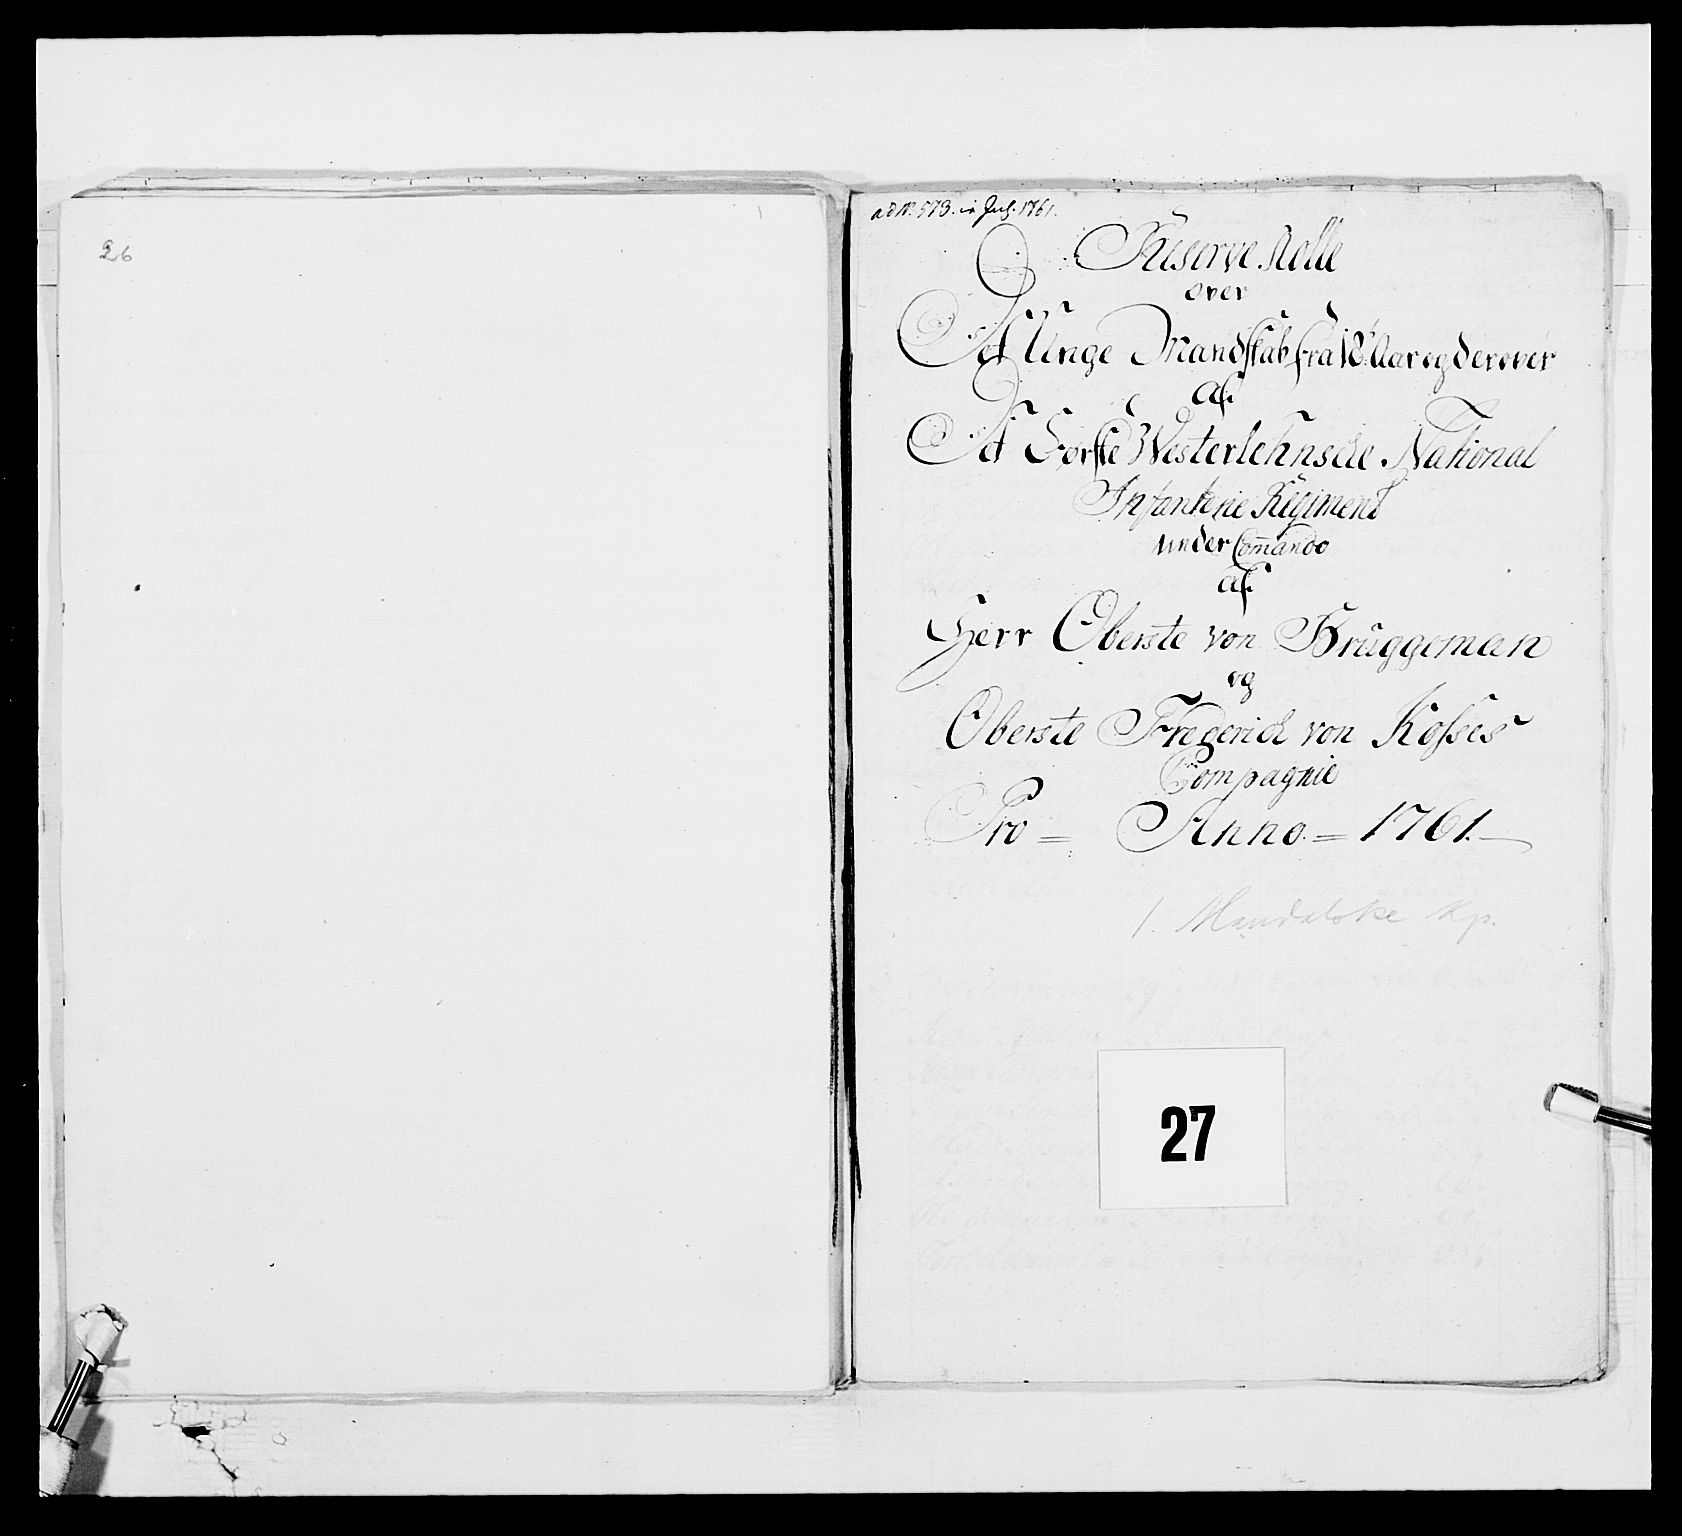 26
ad N. 573. in Jul. 1761.
Reserve Rolle
over
Det Unge Mandskab fra 18 Aar og derover
af
Det Første Westerlehnsche National
Infanterie Regiment
under Com̄ando
af
Herr Oberste von Brüggeman
og
Oberste Frederich von Kosses
Compagnie
Pro = Anno = 1761.
1. Mandalske Kp.
27